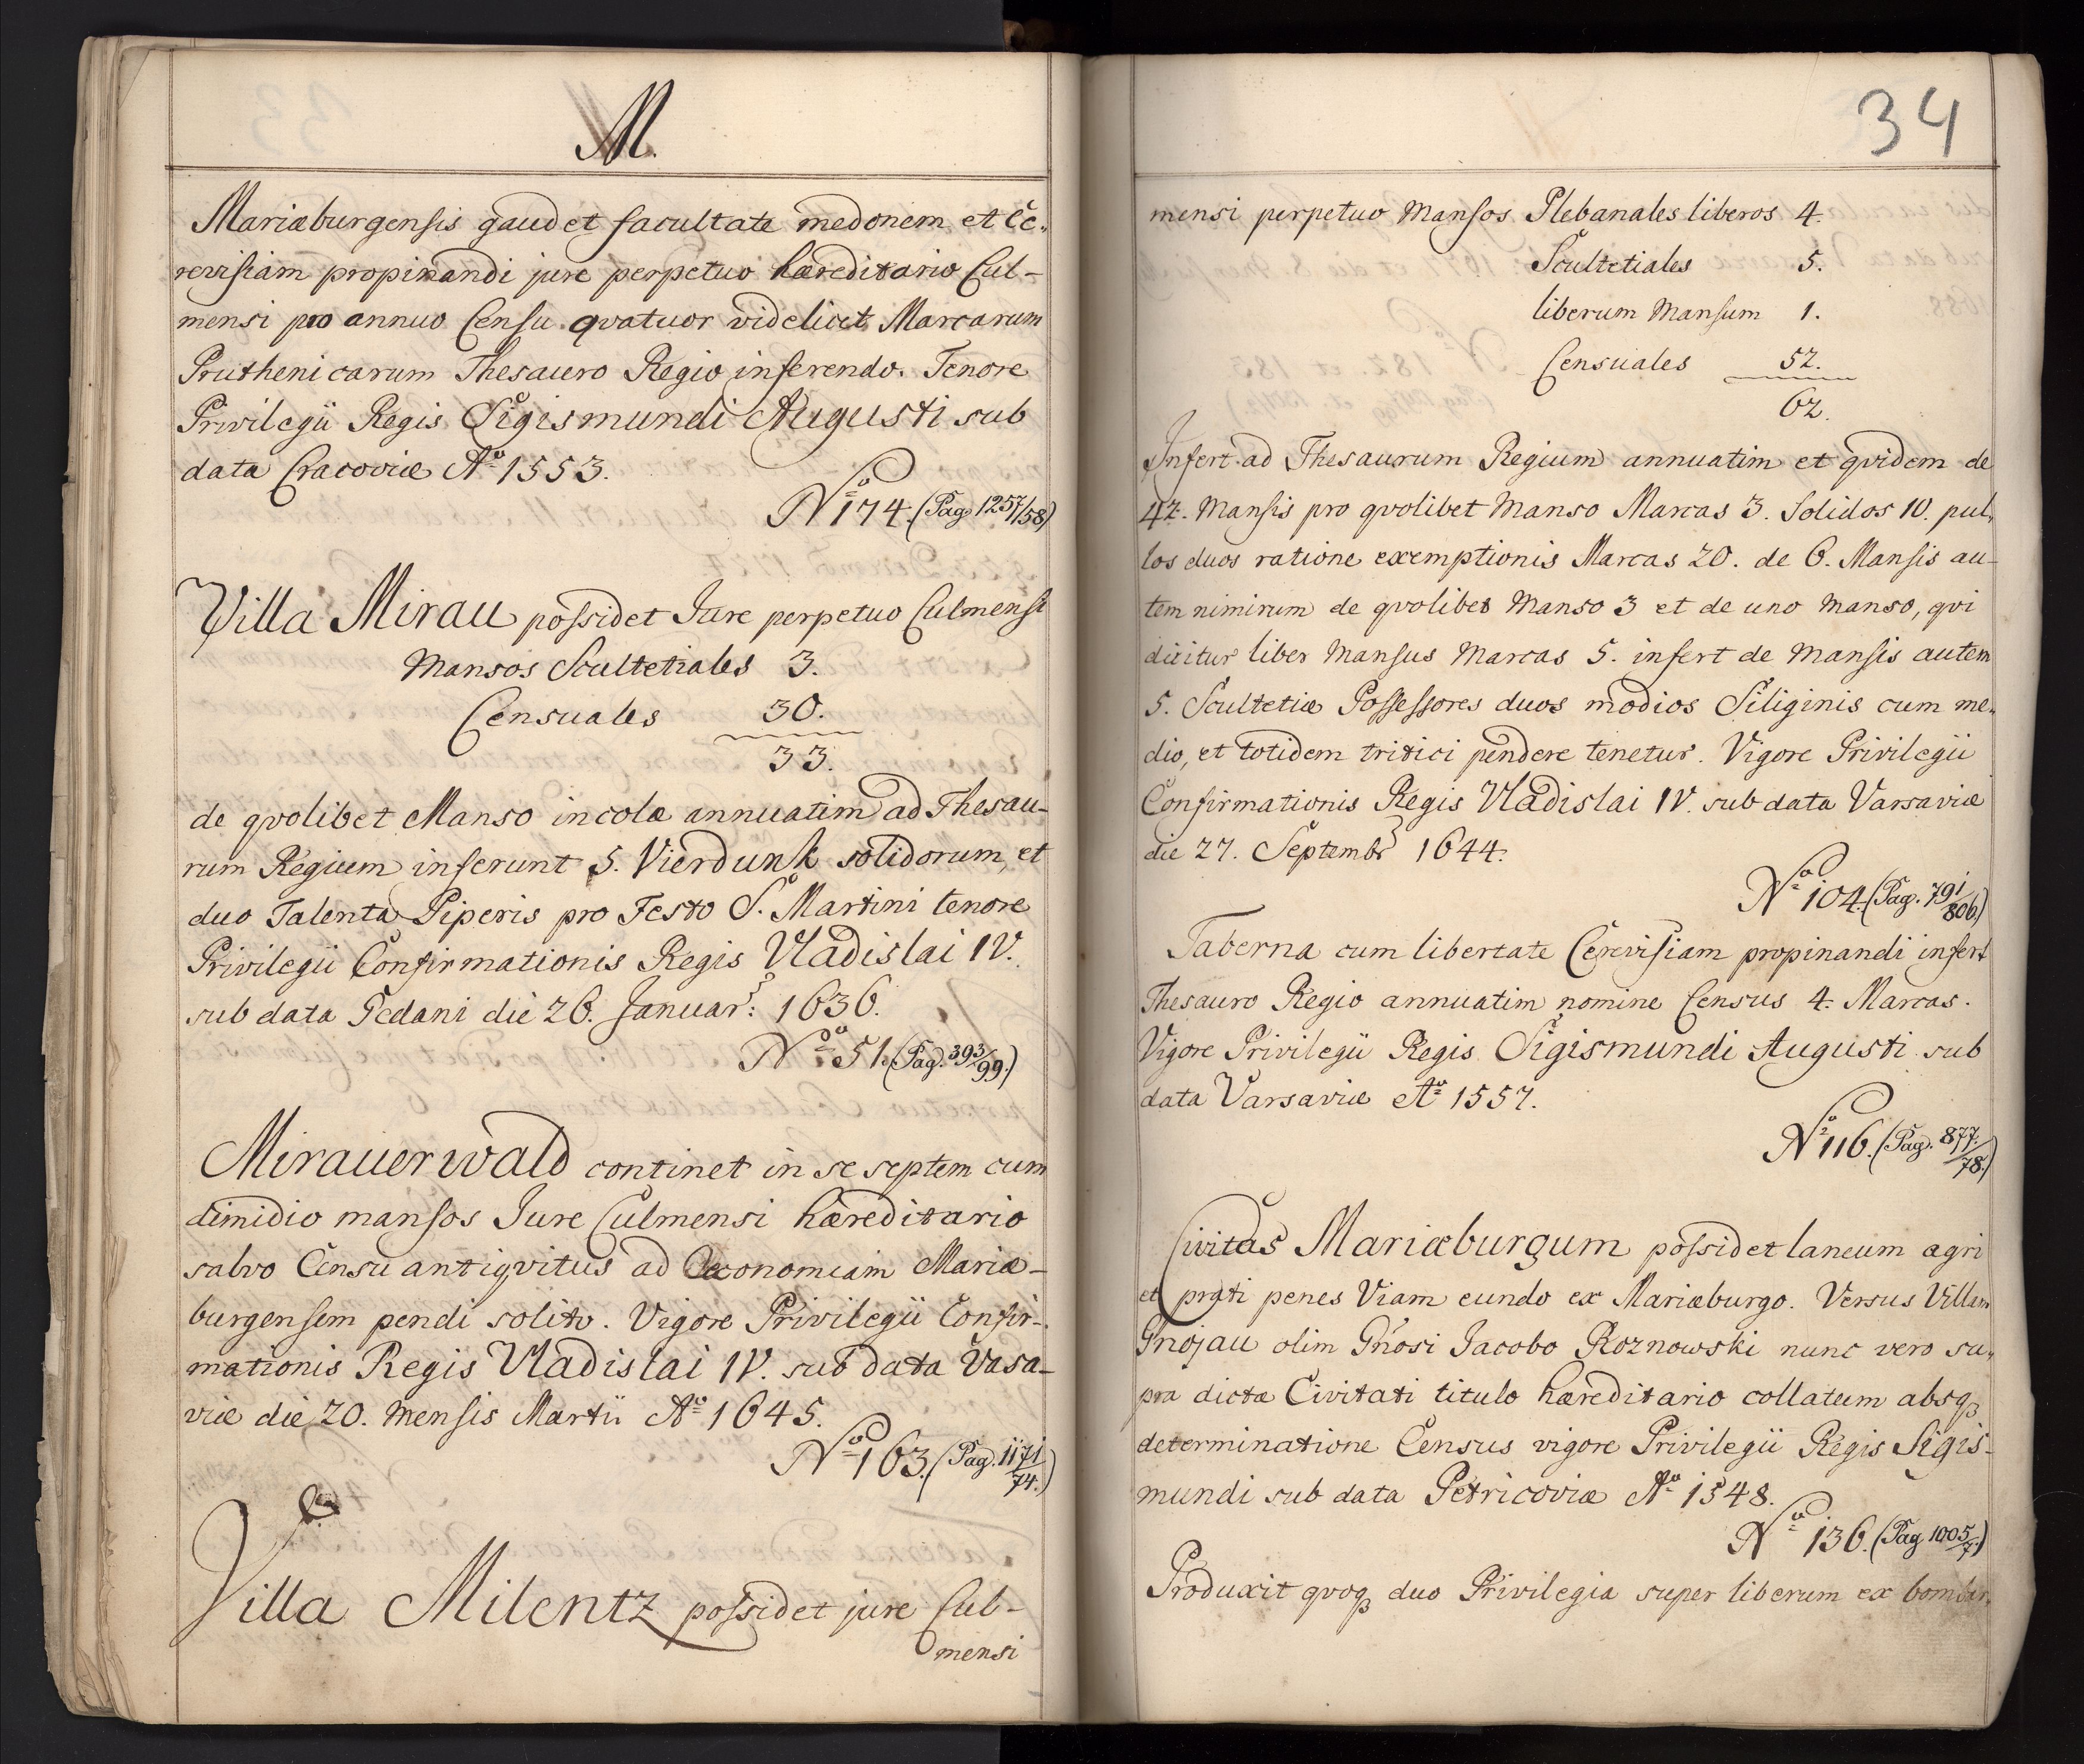 M.
Mariæburgensis gaudet facultate medonem et Ce-
revisiam propinandi jure perpetuo hæreditario Cul-
mensi pro annuo Censu qvatuor videlicet Marcarum
Pruthenicarum Thesauro Regio inferendo. Tenore
Privilegii Regis Sigismundi Augusti sub
data Cracoviæ Aº 1553.
Nº 174. (Pag. 1257/58)
Villa Mirau possidet Jure perpetuo Culmensi
Mansos Scultetiales 3.
Censuales 30.
33.
de qvolibet Manso incolæ annuatim ad Thesau-
rum Regium inferunt 5. Vierdunk solidorum, et
duo Talenta Piperis pro Festo S. Martini tenore
Privilegii Confirmationis Regis Vladislai IV.
sub data Gedani die 26. Januar: 1636.
Nº 51. (Pag. 393/99.)
Mirauerwald continet in se septem cum
dimidio mansos Jure Culmensi hæreditario
salvo Censu antiqvitus ad Oeconomiam Mariæ-
burgensem pendi solito. Vigore Privilegii Confir-
mationis Regis Vladislai IV. sub data Vasa-
viæ die 20. mensis Martii Aº 1645.
Nº 163. (Pag. 1171/74.)
Villa Milentz possidet jure Cul-
mensi
34
mensi perpetuo Mansos Plebanales liberos 4.
Scultetiales 5.
liberum Mansum 1.
Censuales 52.
62.
Infert ad Thesaurum Regium annuatim et qvidem de
42. Mansis pro qvolibet Manso Marcas 3. Solidos 10. pul-
los duos ratione exemptionis Marcas 20. de 6. Mansis au-
tem nimirum de qvolibet Manso 3 et de uno Manso, qvi
dicitur liber Mansus Marcas 5. infert de Mansis autem
5. Scultetiæ Possessores duos modios Siliginis cum me-
dio, et totidem tritici pendere tenetur. Vigore Privilegii
Confirmationis Regis Vladislai IV. sub data Varsaviæ
die 27. Septembr 1644.
Nº 104. (Pag. 791/806.)
Taberna cum libertate Cerevisiam propinandi infert
Thesauro Regio annuatim nomine Census 4. Marcas.
Vigore Privilegii Regis Sigismundi Augusti sub
data Varsaviæ Aº 1557.
Nº 116. (Pag. 877./78.)
Civitas Mariæburgum possidet laneum agri
et prati penes Viam eundo ex Mariæburgo. Versus Villam
Gnojau olim Gnosi Jacobo Roznowski nunc vero su-
pra dictæ Civitati titulo hæreditario collatum absqꝫ
determinatione Census vigore Privilegii Regis Sigis-
mundi sub data Petricoviæ Aº 1548.
Nº 136. (Pag 1005/7.)
Produxit qvoqꝫ duo Privilegia super liberum ex bombar-